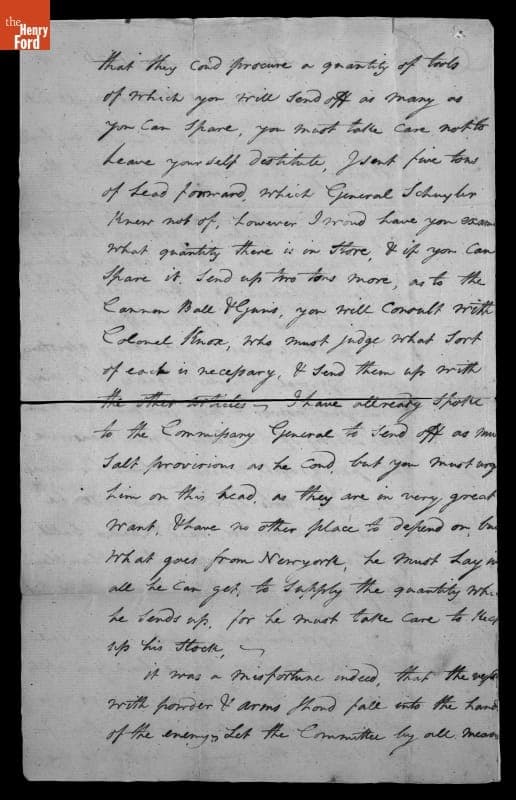 the
Henry
Ford
that they Cond procure a quantity of tools
of which you will send off as many as
you Can Spare, you must take care not to
Leave yourself destitute, I sent five tons
of Lead forward, which General Schuyler
Knew not of, however I woud have you exam
what quantity there is in Store, & if you Can
Spare it. Send up two tons more, as to the
Cannon Ball & Guns, you will Consult with
Colonel Knox, who must judge what Sort
of each is necessary, & Send them up with
the other articles, I have allready Spoke
to the Commissary General to Send off as mu
Salt provisions as he Cond, but you must urg
him on this head, as they are in very great
Want, & have no other place to depend on, bu
What goes from Newyork, he must Lay in
all he Can get, to Supply the quantity whi
he Sends up, for he must take Care to Kee
up his Stock,
it was a misfortune indeed, that the
with powder & arms Shond fall into the hand
of the enemy, Let the Committee by all mean